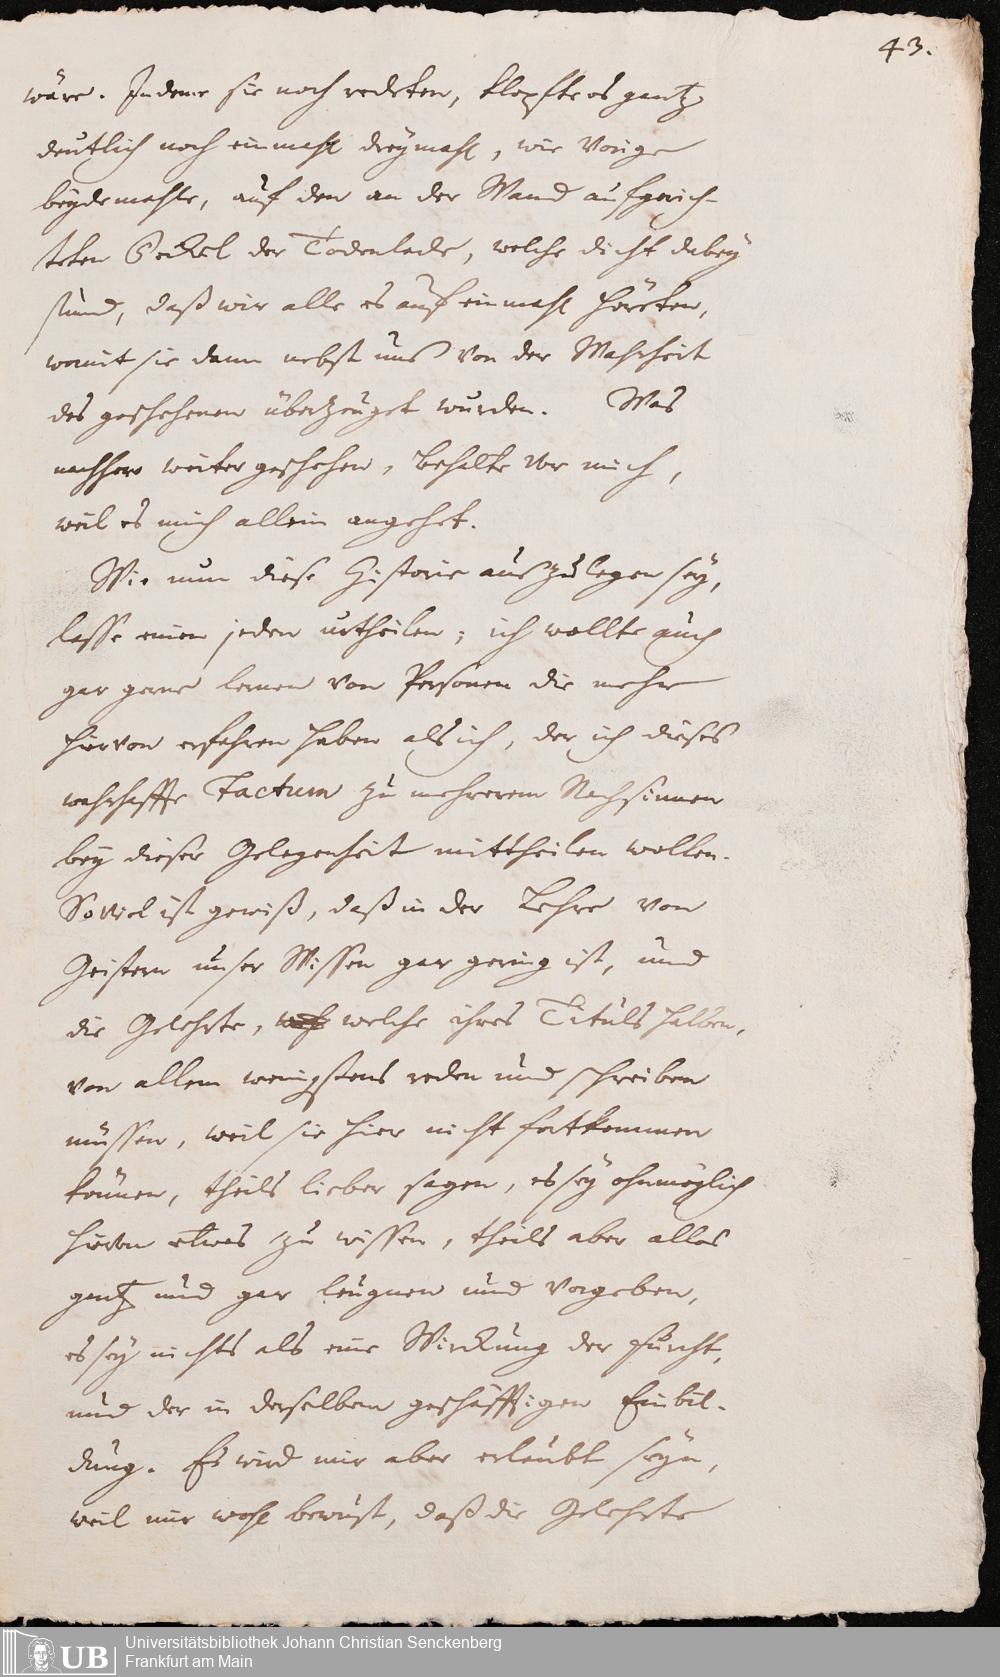 43.
wäre. Indeme sie noch redeten, klopfte es gantz
deutlich noch einmahl dreymahl, wie vorige
beydemahle, auf den an der Wand aufgerich-
teten Deckel der Todenlade, welche dicht dabey
stund, daß wir alle es auf einmahl höreten,
womit sie dann nebst uns von der Wahrheit
des geschehenen überzeuget wurden. Was
nachher weiter geschehen, behalte vor mich,
weil es mich allein angehet.
Wie nun diese Historie auszulegen sey,
lasse einen jeden urtheilen; ich wollte auch
gar gerne lernen von Personen die mehr
hiervon erfahren haben als ich, der ich dieses
wahrhaffte Factum zu mehrerem Nachsinnen
bey dieser Gelegenheit mittheilen wollen.
Soviel ist gewiß, daß in der Lehre von
Geistern unser Wissen gar gering ist, und
die Gelehrte, welche ihres Tituls halben,
von allem wenigstens reden und schreiben
müssen, weil sie hier nicht fortkommen
können, theils lieber sagen, es sey ohnmöglich
hievon etwas zu wissen, theils aber alles
gantz und gar leugnen und vorgeben,
es sey nichts als eine Wirckung der Furcht,
und der in derselben geschäfftigen Einbil-
dung. Es wird mir aber erlaubt seyn,
weil mir wohl bewust, daß die Gelehrte
UB Universitätsbibliothek Johann Christian Senckenberg
Frankfurt am Main